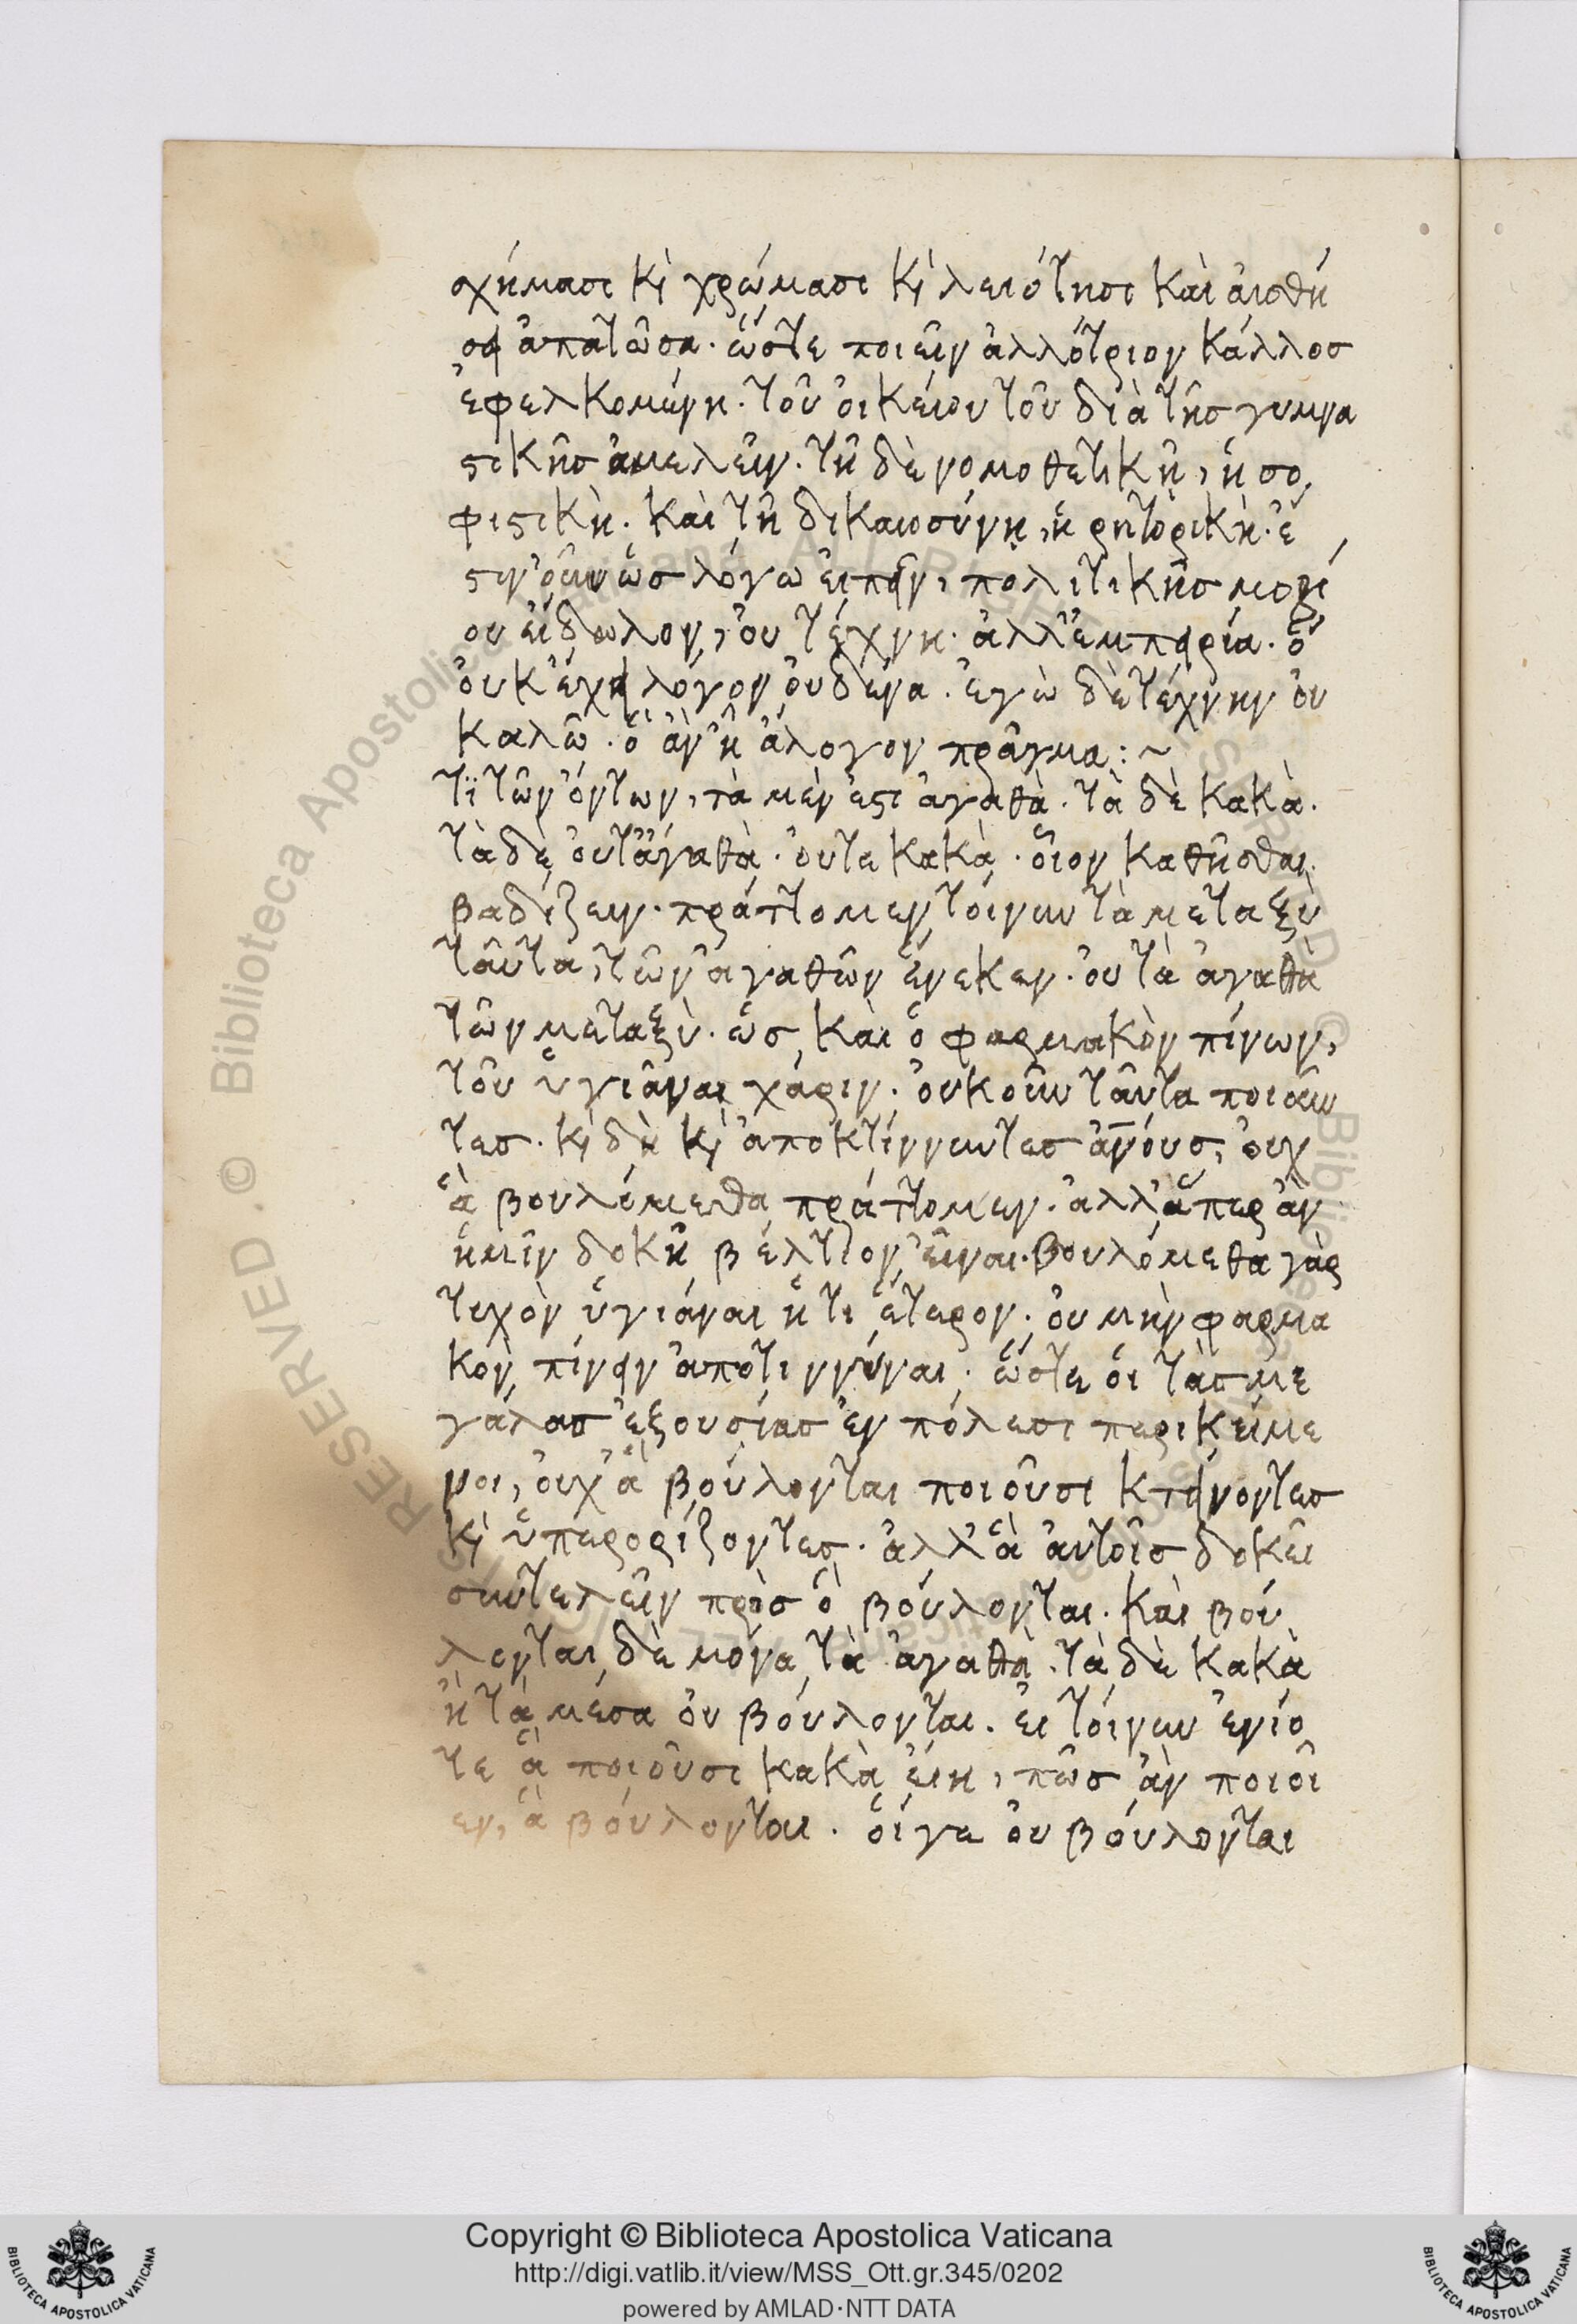 σχήμασι κὶ χρώμασι κὶ λειότησι καὶ ἀισθή
σει ἀπατῶσα· ὥστε ποιεῖν ἀλλότριον κάλλοσ
ἐφελκομένη· τοῦ ὀικείου τοῦ διὰ τῆσ γυμνα
στικῆσ ἀμελεῖν· τῆ δὲ νομοθετικῆ, ἡ σο
φιστικὴ· καὶ τῆ δικαιοσύνη, ἡ ρητορικὴ· ἐ
στιν οὖν ὡσ λόγω ἐιπεῖν, πολιτικῆσ μορί
ου ἐίδωλον, ὀυ τέχνη· ἀλλ' ἐμπειρία· ὃ
ὀυκ ἔχει λόγον ὀυδένα· ἐγὼ δὲ τέχνην ὀυ
καλῶ· ὃ ἂν ἦ ἄλογον πρᾶγμα:~
τϊ τῶν ὄντων, τὰ μὲν ἐστι ἀγαθὰ· τὰ δὲ κακὰ·
τὰ δὲ ὀυτ' ἀγαθὰ· ὀυτε κακὰ· ὅιον καθῆσθαι·
βαδίζειν· πράττομεν τοίνυν τὰ μεταξὺ
ταῦτα, τῶν ἀγαθῶν ἕνεκεν· ὀυ τὰ ἀγαθὰ
τῶν μεταξὺ· ὡσ καὶ ὁ φαρμακὸν πίνων,
τοῦ ὑγιᾶναι χάριν· ὀυκοῦν ταῦτα ποιοῦν
τεσ· κὶ δὴ κὶ ἀποκτίννυντεσ ἀνόυσ, ὀυχ
ἃ βουλόμεθα πράττομεν· ἀλλ' ἅπερ ἂν
ἡμῖν δοκῆ βέλτιον εἶναι· βουλόμεθα γὰρ
τυχὸν ὑγιάναι ἤ τι ἕτερον· ὀυ μὴν φαρμα
κὸν πίνειν ἀποτιννύναι· ὥστε ὁι τὰσ με
γάλασ ἐξουσίασ ἐν πόλεσι περικείμε
νοι, ὀυχ ἃ βούλονται ποιοῦσι κτείνοντεσ
κὶ ὑπερορίζοντεσ· ἀλλ' ἃ ἀυτοῖσ δοκεῖ
συντελεῖν πρὸσ ὃ βόυλονται· καὶ βού
λονται δὲ μόνα τὰ ἀγαθὰ· τὰ δὲ κακὰ
ἢ τὰ μέσα ὀυ βόυλονται· ἐι τόινυν ἐνίο
τε ἃ ποιοῦσι κακὰ ἐίη, πῶσ ἂν ποιοῖ
εν, ἃ βόυλονται· ὅι γε ὀυ βόυλονται
Copyright © Biblioteca Apostolica Vaticana
http://digi.vatlib.it/view/MSS_Ott.gr.345/0202
powered by AMLAD·NTT DATA